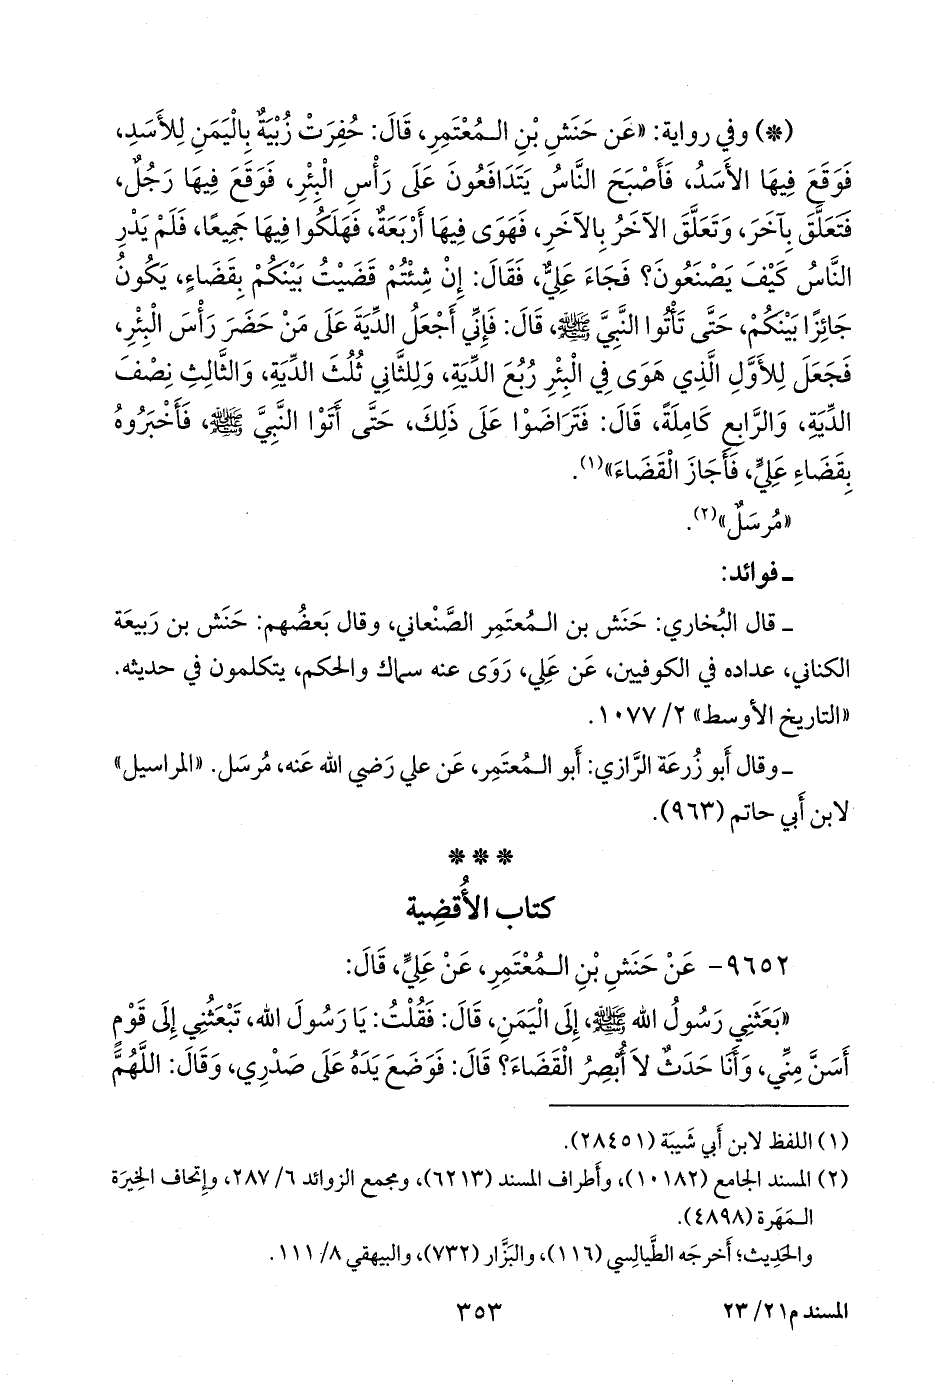 (*) وفي رواية: «عَن حَنَشِ بْنِ الـمُعْتَمِرِ، قَالَ: حُفِرَتْ زُبْيَةٌ بِالْيَمَنِ لِلأَسَدِ،
فَوَقَعَ فِيهَا الأَسَدُ، فَأَصْبَحَ النَّاسُ يَتَدَافَعُونَ عَلَى رَأْسِ الْبِئْرِ، فَوَقَعَ فِيهَا رَجُلٌ،
فَتَعَلَّقَ بِآخَرَ، وَتَعَلَّقَ الآخَرُ بِالآخَرِ، فَهَوَى فِيهَا أَرْبَعَةٌ، فَهَلَكُوا فِيهَا جَمِيعًا، فَلَمْ يَدْرِ
النَّاسُ كَيْفَ يَصْنَعُونَ؟ فَجَاءَ عَلِيٌّ، فَقَالَ: إِنْ شِئْتُمْ قَضَيْتُ بَيْنَكُمْ بِقَضَاءٍ، يَكُونُ
جَائِزًا بَيْنَكُمْ، حَتَّى تَأْتُوا النَّبِيَّ ﷺ، قَالَ: فَإِنِّي أَجْعَلُ الدِّيَةَ عَلَى مَنْ حَضَرَ رَأْسَ الْبِئْرِ،
فَجَعَلَ لِلأَوَّلِ الَّذِي هَوَى فِي الْبِئْرِ رُبُعَ الدِّيَةِ، وَلِلثَّانِي ثُلُثَ الدِّيَةِ، وَالثَّالِثِ نِصْفَ
الدِّيَةِ، وَالرَّابِعِ كَامِلَةً، قَالَ: فَتَرَاضَوْا عَلَى ذَلِكَ، حَتَّى أَتَوْا النَّبِيَّ ﷺ، فَأَخْبَرُوهُ
بِقَضَاءِ عَلِيٍّ، فَأَجَازَ الْقَضَاءَ»(١).
«مُرسَلٌ»(٢).
ـ فوائد:
ـ قال البُخاري: حَنَش بن الـمُعتَمِر الصَّنْعاني، وقال بَعضُهم: حَنَش بن رَبيعَة
الكناني، عداده في الكوفيين، عَن عَلي، رَوَى عنه سماك والحكم، يتكلمون في حديثه.
«التاريخ الأوسط» ٢/ ١٠٧٧.
ـ وقال أَبو زُرعَة الرَّازي: أَبو الـمُعتَمِر، عَن علي رَضي الله عَنه، مُرسَل. «المراسيل»
لابن أَبي حاتم (٩٦٣).
* * *
كتاب الأُقضِية
٩٦٥٢- عَنْ حَنَشِ بْنِ الـمُعْتَمِرِ، عَنْ عَلِيٍّ، قَالَ:
«بَعَثَنِي رَسُولُ الله ﷺ، إِلَى الْيَمَنِ، قَالَ: فَقُلْتُ: يَا رَسُولَ الله، تَبْعَثُنِي إِلَى قَوْمٍ
أَسَنَّ مِنِّي، وَأَنَا حَدَثٌ لاَ أُبْصِرُ الْقَضَاءَ؟ قَالَ: فَوَضَعَ يَدَهُ عَلَى صَدْرِي، وَقَالَ: اللَّهُمَّ
(١) اللفظ لابن أَبي شَيبَة (٢٨٤٥١).
(٢) المسند الجامع (١٠١٨٢)، وأَطراف المسند (٦٢١٣)، ومجمع الزوائد ٦/ ٢٨٧، وإِتحاف الخِيرَة
الـمَهَرة (٤٨٩٨).
والحَدِيث؛ أَخرجَه الطَّيالِسي (١١٦)، والبَزَّار (٧٣٢)، والبيهقي ٨/ ١١١.
المسند م٢١/ ٢٣
٣٥٣